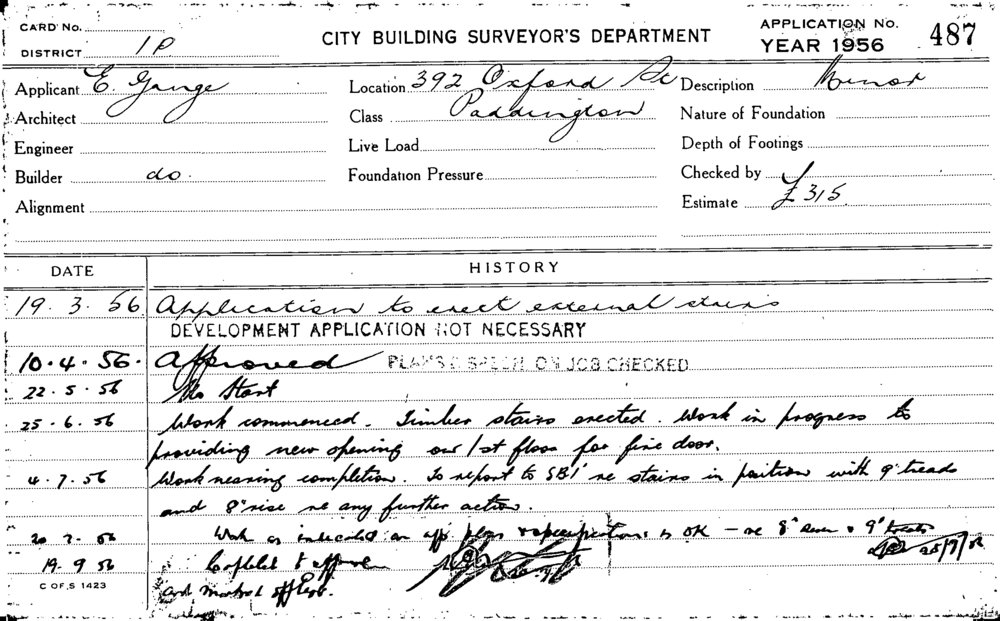 CARD No.
DISTRICT 1P
CITY BUILDING SURVEYOR'S DEPARTMENT
APPLICATION No.
YEAR 1956
487
Applicant E. Gange
Location 392 Oxford St
Description Minor
Architect
Class Paddington
Nature of Foundation
Engineer
Live Load
Depth of Footings
Builder do.
Foundation Pressure
Checked by
Alignment
Estimate £315.
DATE
HISTORY
19. 3. 56 Application to erect external stairs
DEVELOPMENT APPLICATION NOT NECESSARY
10.4.56. Approved PLANS & SPECN. ON JOB CHECKED
22.5.56 No Start
25.6.56 Work commenced. Timber stairs erected. Work in progress to
providing new opening on 1st floor for fire door.
4.7.56 Work nearing completion. To report to SBI re stairs in position with 9" treads
and 8" rise re any further action.
20.7.56 Work as indicated on app plans & specifications is OK – re 8" risers & 9" treads
25/7/56
19.9.56
and marked off
C OF S 1423